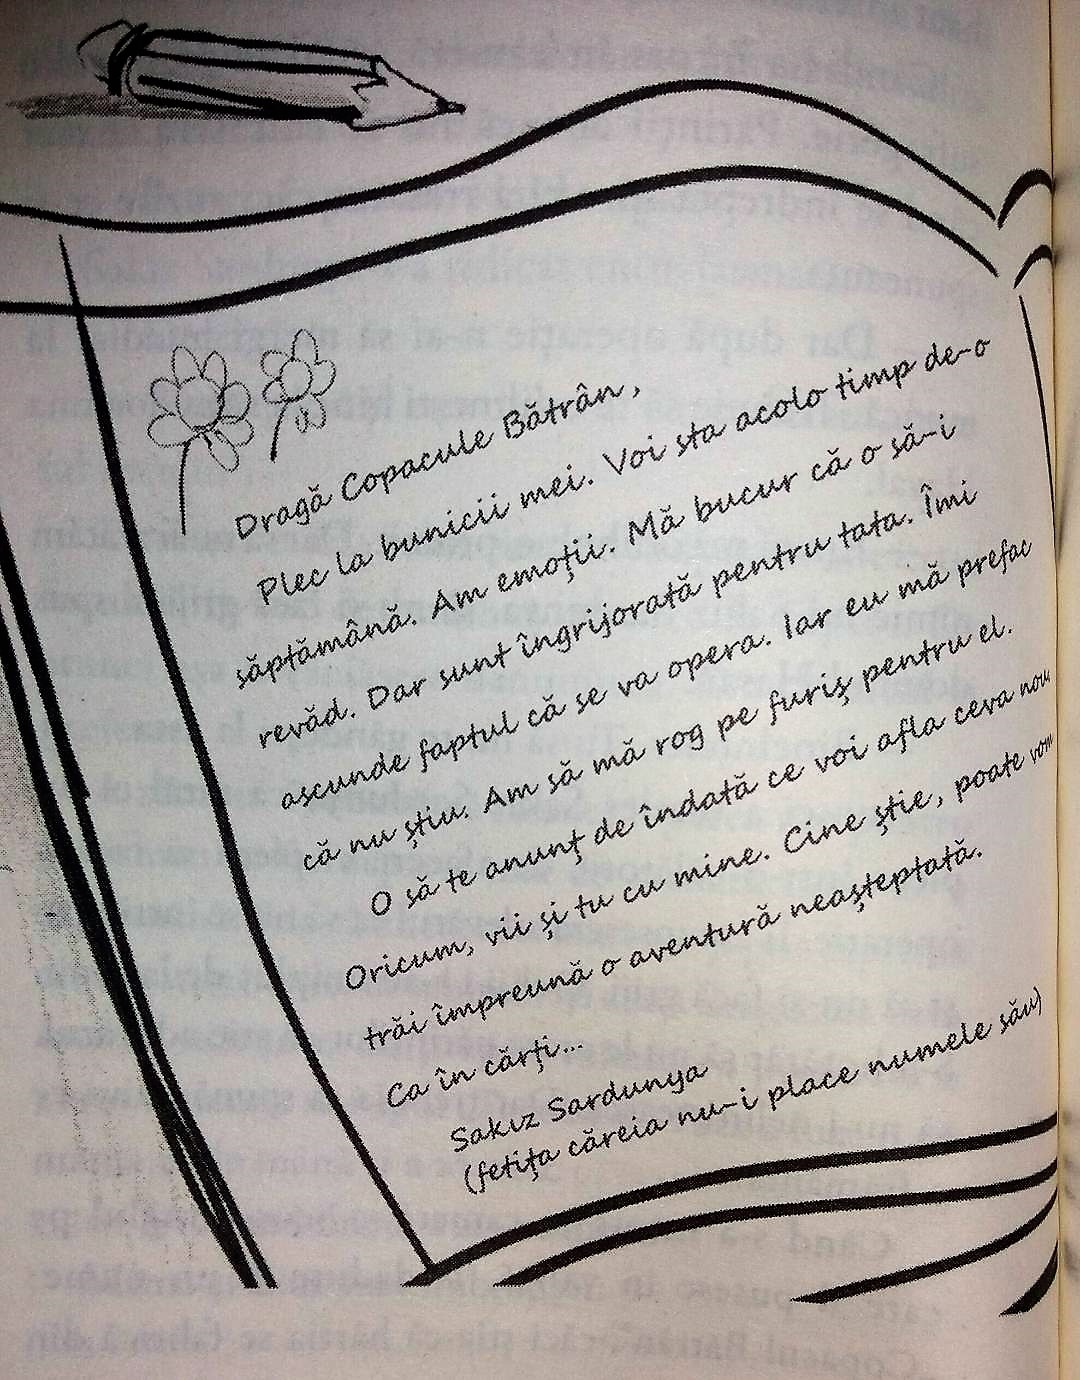 Dragă Copacule Bătrân,
Plec la bunicii mei. Voi sta acolo timp de-o
săptămână. Am emoţii. Mă bucur că o să-i
revăd. Dar sunt îngrijorată pentru tata. Îmi
ascunde faptul că se va opera. Iar eu mă prefac
că nu ştiu. Am să mă rog pe furiş pentru el.
O să te anunţ de îndată ce voi afla ceva nou.
Oricum, vii şi tu cu mine. Cine ştie, poate vom
trăi împreună o aventură neaşteptată.
Ca în cărţi...
Sakız Sardunya
(fetiţa căreia nu-i place numele său)